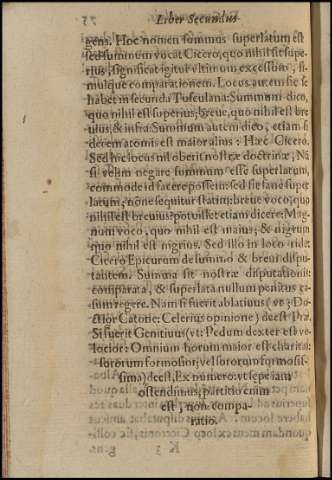 Liber Secundus
gens. Hoc nomen summus superlatum est
sed summum vocat Cicero, quo nihil sit supe-
rius, significat igitur vltimum excessum, si-
mulque comparationem. Locus autem sic se
habet in secunda Tusculana: Summum dico,
quo nihil est superius; breue, quo nihil est bre
uius; & infra: Summum autem dico, etiam si
decem atomis est maior alius: Hæc Cicero.
Sed hic locus nil oberit nostræ doctrinæ, Nã
si velim negare summum esse superlatum,
commode id facere possem: sed sit sane super
latum, none sequitur statim: breue voco, quo
nihil est breuius? potuisset etiam dicere: Mag-
num voco, quo nihil est maius; & nigrum
quo nihil est nigrius. Sed illo in loco ridet
Cicero Epicurum de summo & breui dispu-
tantem. Summa sit nostræ disputationis:
comparata, & superlata nullum penitus ca-
sum regere. Nam si fuerit ablatiuus (vt: Do-
ctior Catone: Celerius opinione) deest præ.
Si fuerit Genitiuus (vt: Pedum dexter est ve-
locior: Omnium horum maior est charitas:
sororum formosior, vel sororum formosis-
sima) deest, Ex numero: vt sepe iam
ostendimus, partitio enim
est, non compa-
ratio.